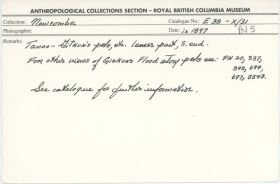 ANTHROPOLOGICAL COLLECTIONS SECTION - ROYAL BRITISH COLUMBIA MUSEUM
Collection: Newcombe Catalogue No.: E 38 - X/31
Photographer: Date: in 1897 PN 5
Remarks: Tanoo - Gitkun's pole, etc. lower part, S. end.
For other views of Gitkun's Flood story pole see: PN 20, 337,
392, 694,
697, 5543.
See catalogue for further information.